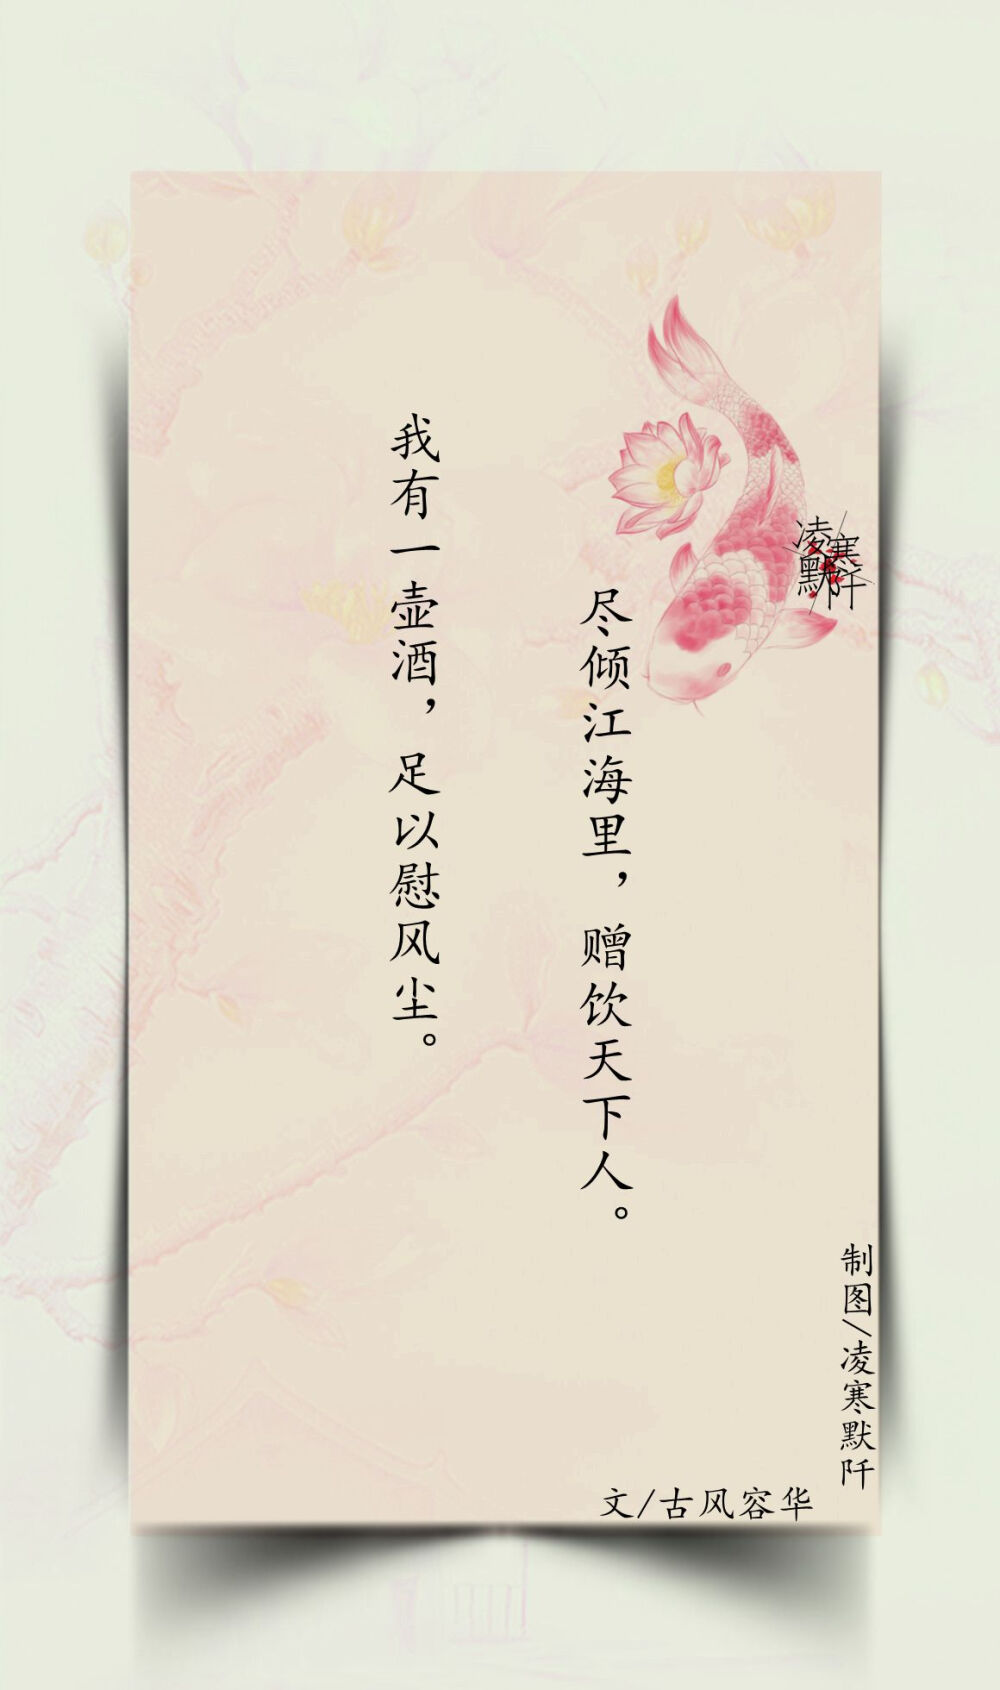 我有一壶酒，足以慰风尘。
尽倾江海里，赠饮天下人。
凌寒默阡
制图/凌寒默阡
文/古风容华